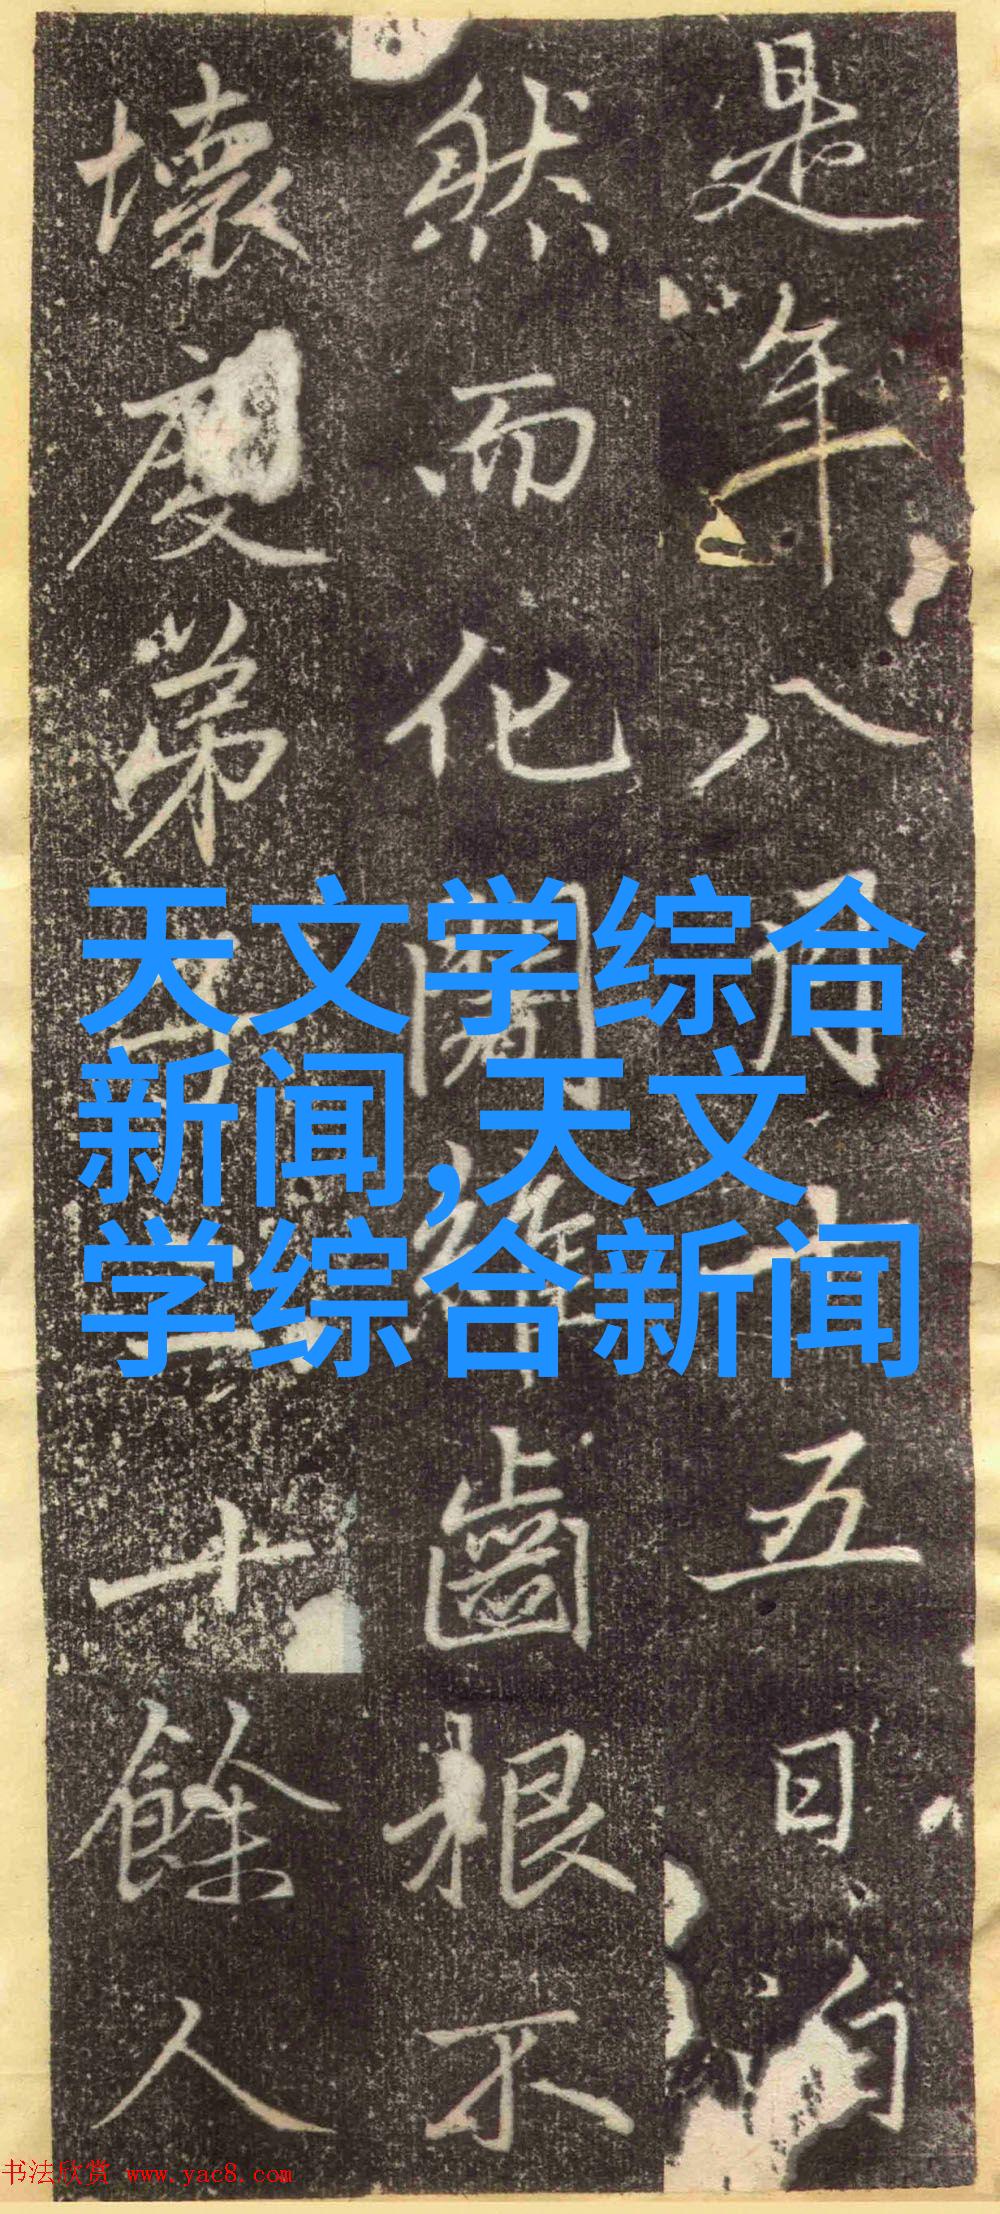 是年八月十五日泊
然而化闍維齒根不
壞度苐子十餘人
天文学综合
新闻,天文
学综合新闻
书法欣赏 www.yac8.com